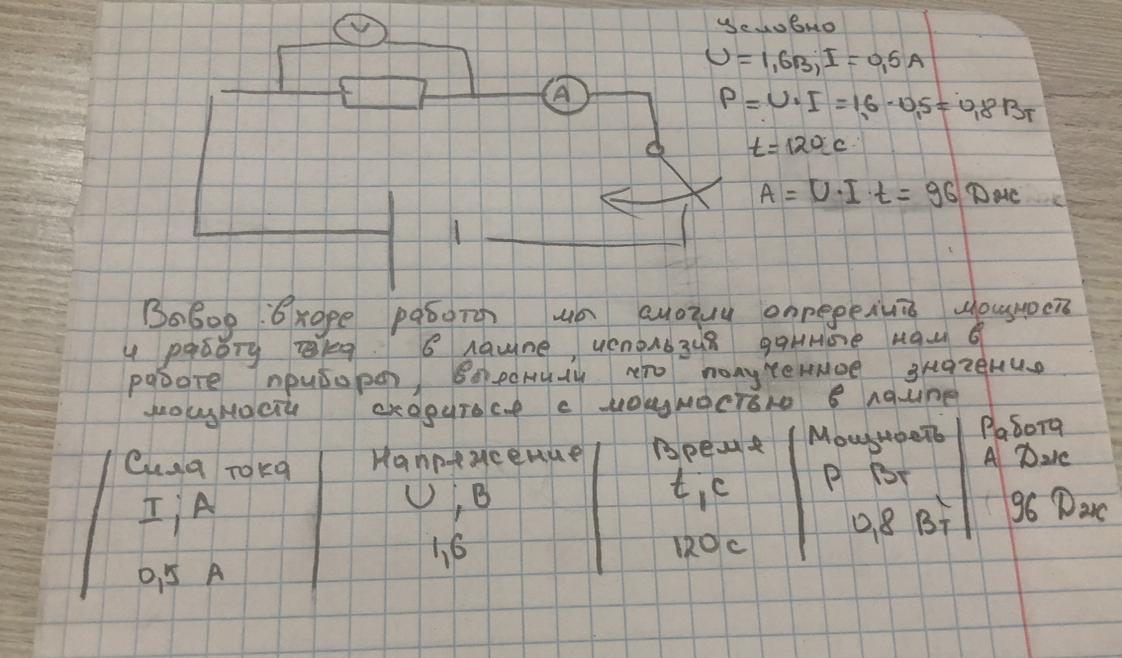 V
A
Условно
U = 1,6В; I = 0,5 А
P = U·I = 1,6·0,5 = 0,8 Вт
t = 120 с
A = U·I·t = 96 Дж
Вывод: в ходе работы мы смогли определить мощность
и работу тока в лампе, используя данные нам в
работе приборы, выяснили что полученное значения
мощности сходиться с мощностью в лампе
Сила тока | Напряжение | Время | Мощность | Работа
I; А | U; В | t, с | P Вт | A Дж
0,5 А | 1,6 | 120 с | 0,8 Вт | 96 Дж